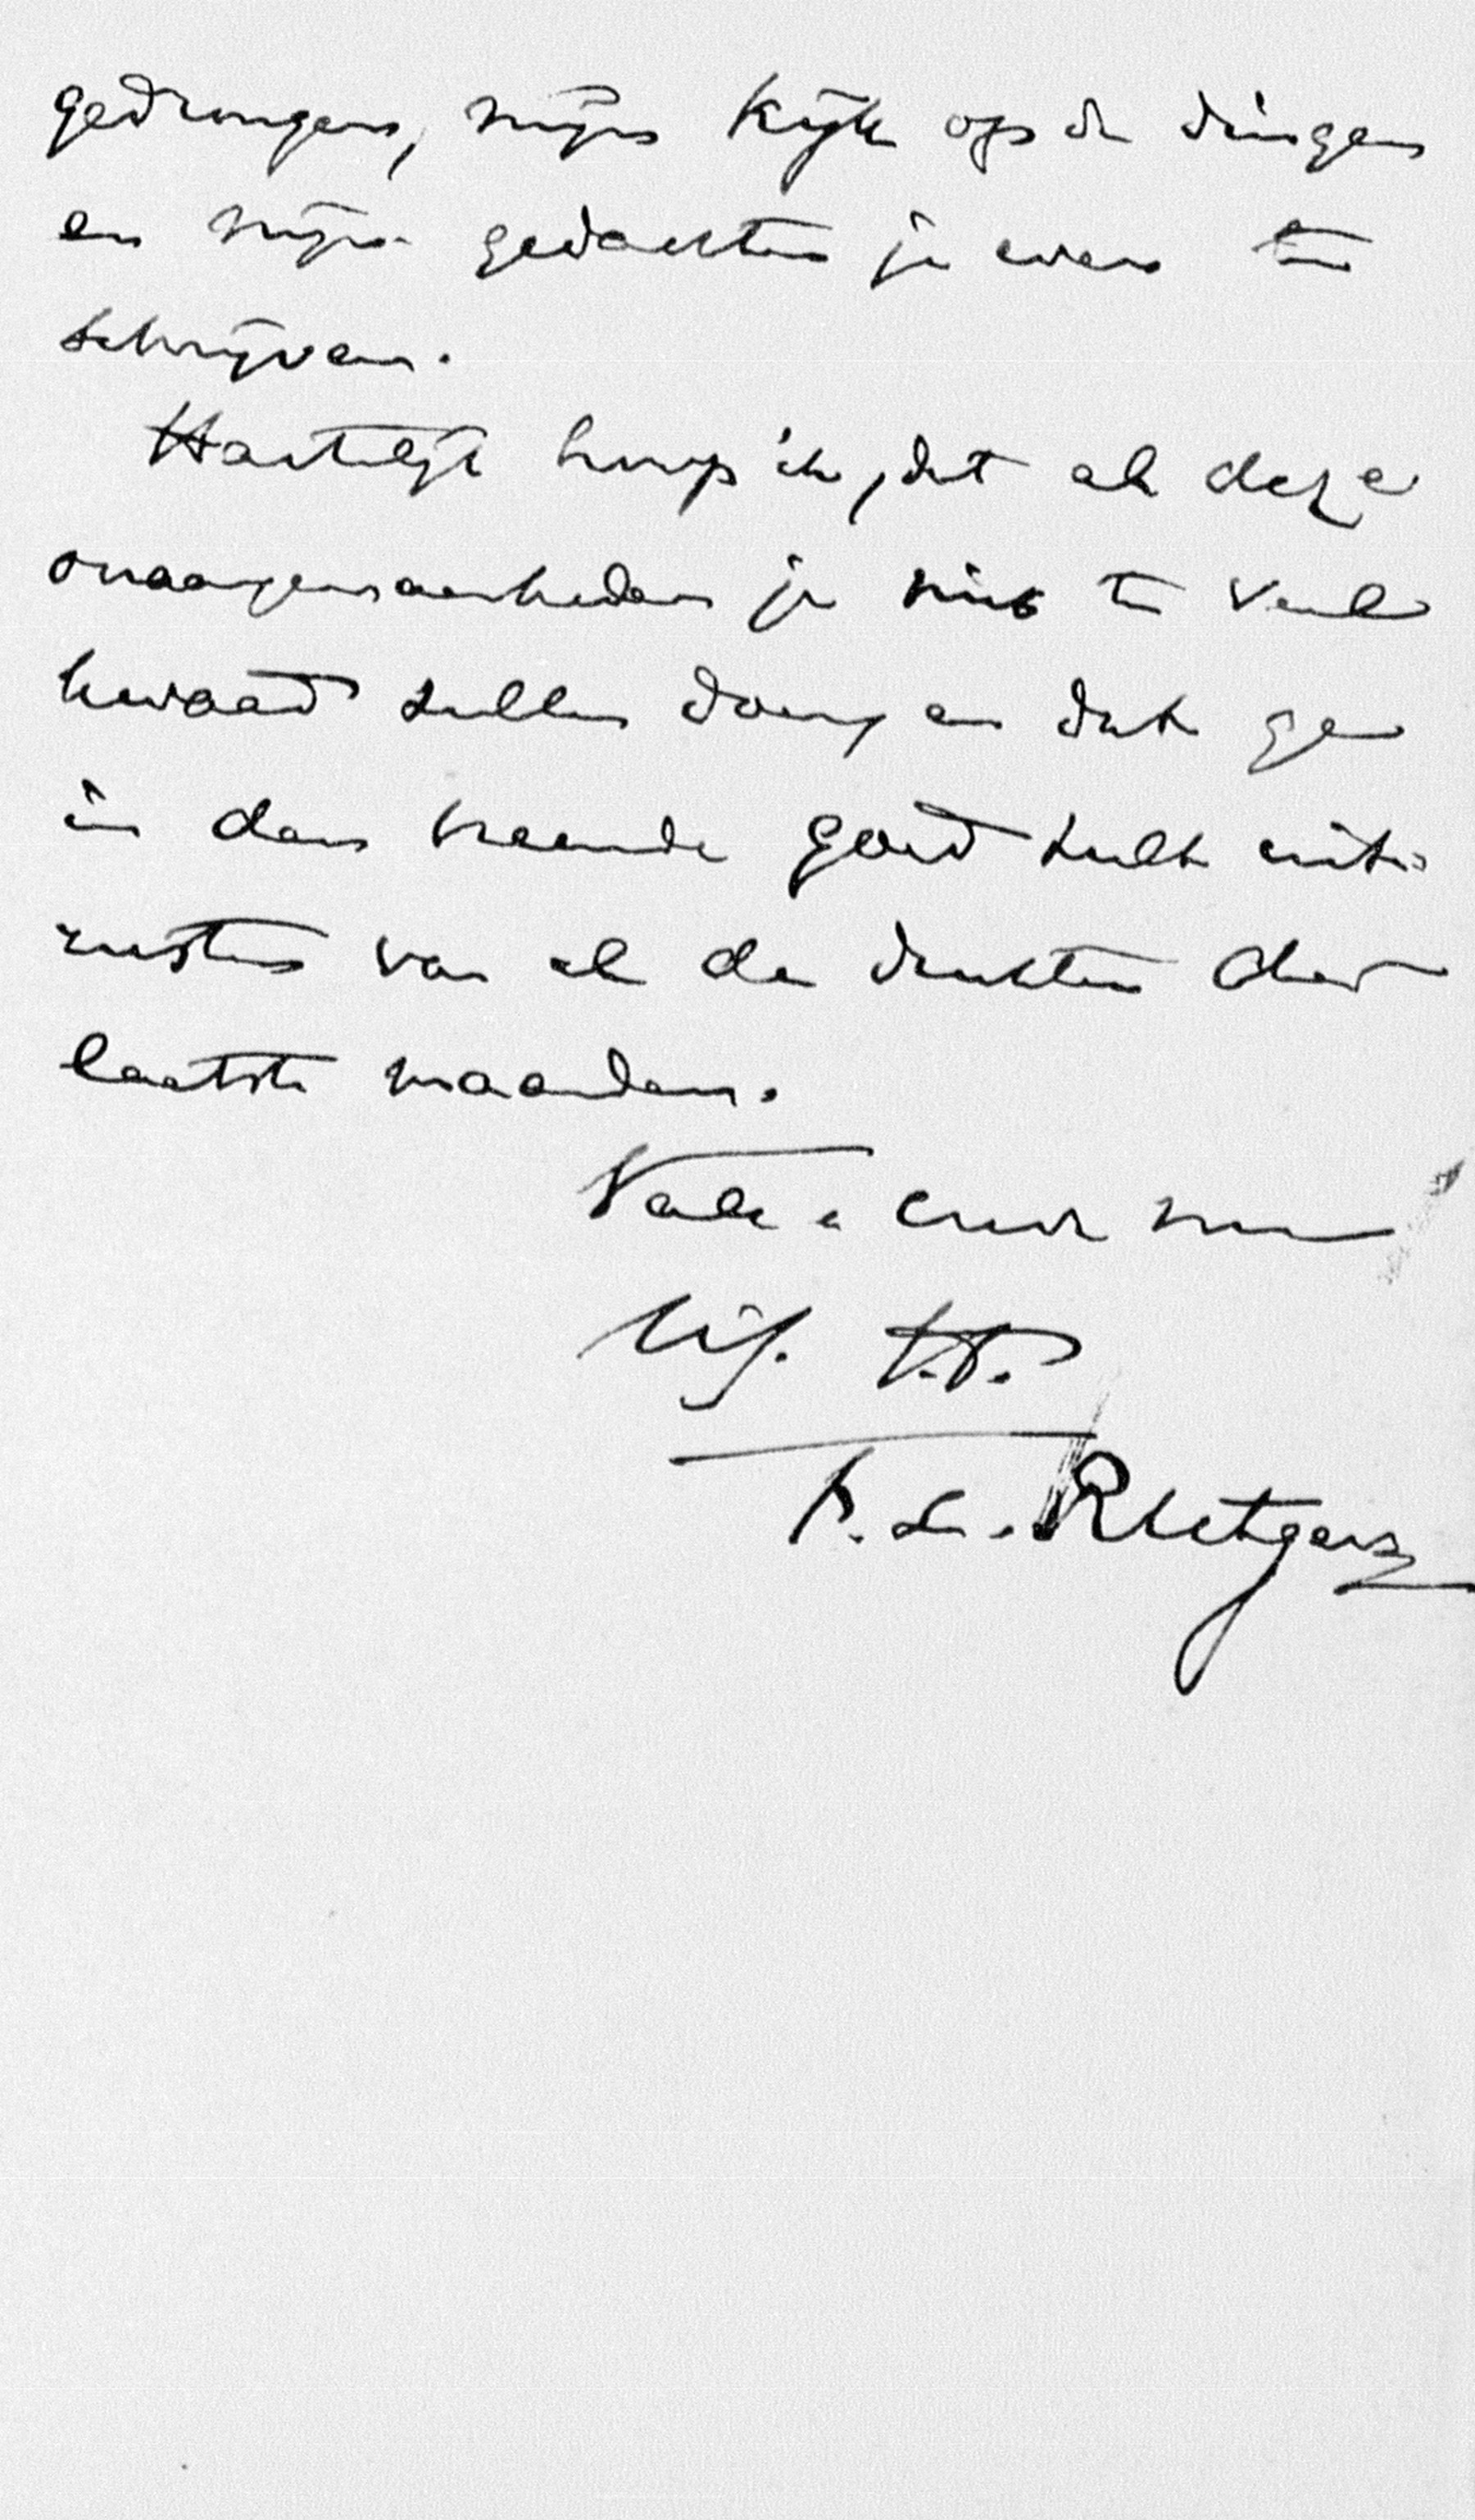 gedrongen, mijn kijk op de dingen
en mijn gedachten je even te
schrijven.
Hartelijk hoop ik, dat al deze
onaangenaamheden je niet te veel
kwaad zullen doen, en dat ge
in den vreemde goed zult uit-
rusten van al de drukten der
laatste maanden.
Vale &
t.t.
F. L. Rutgers